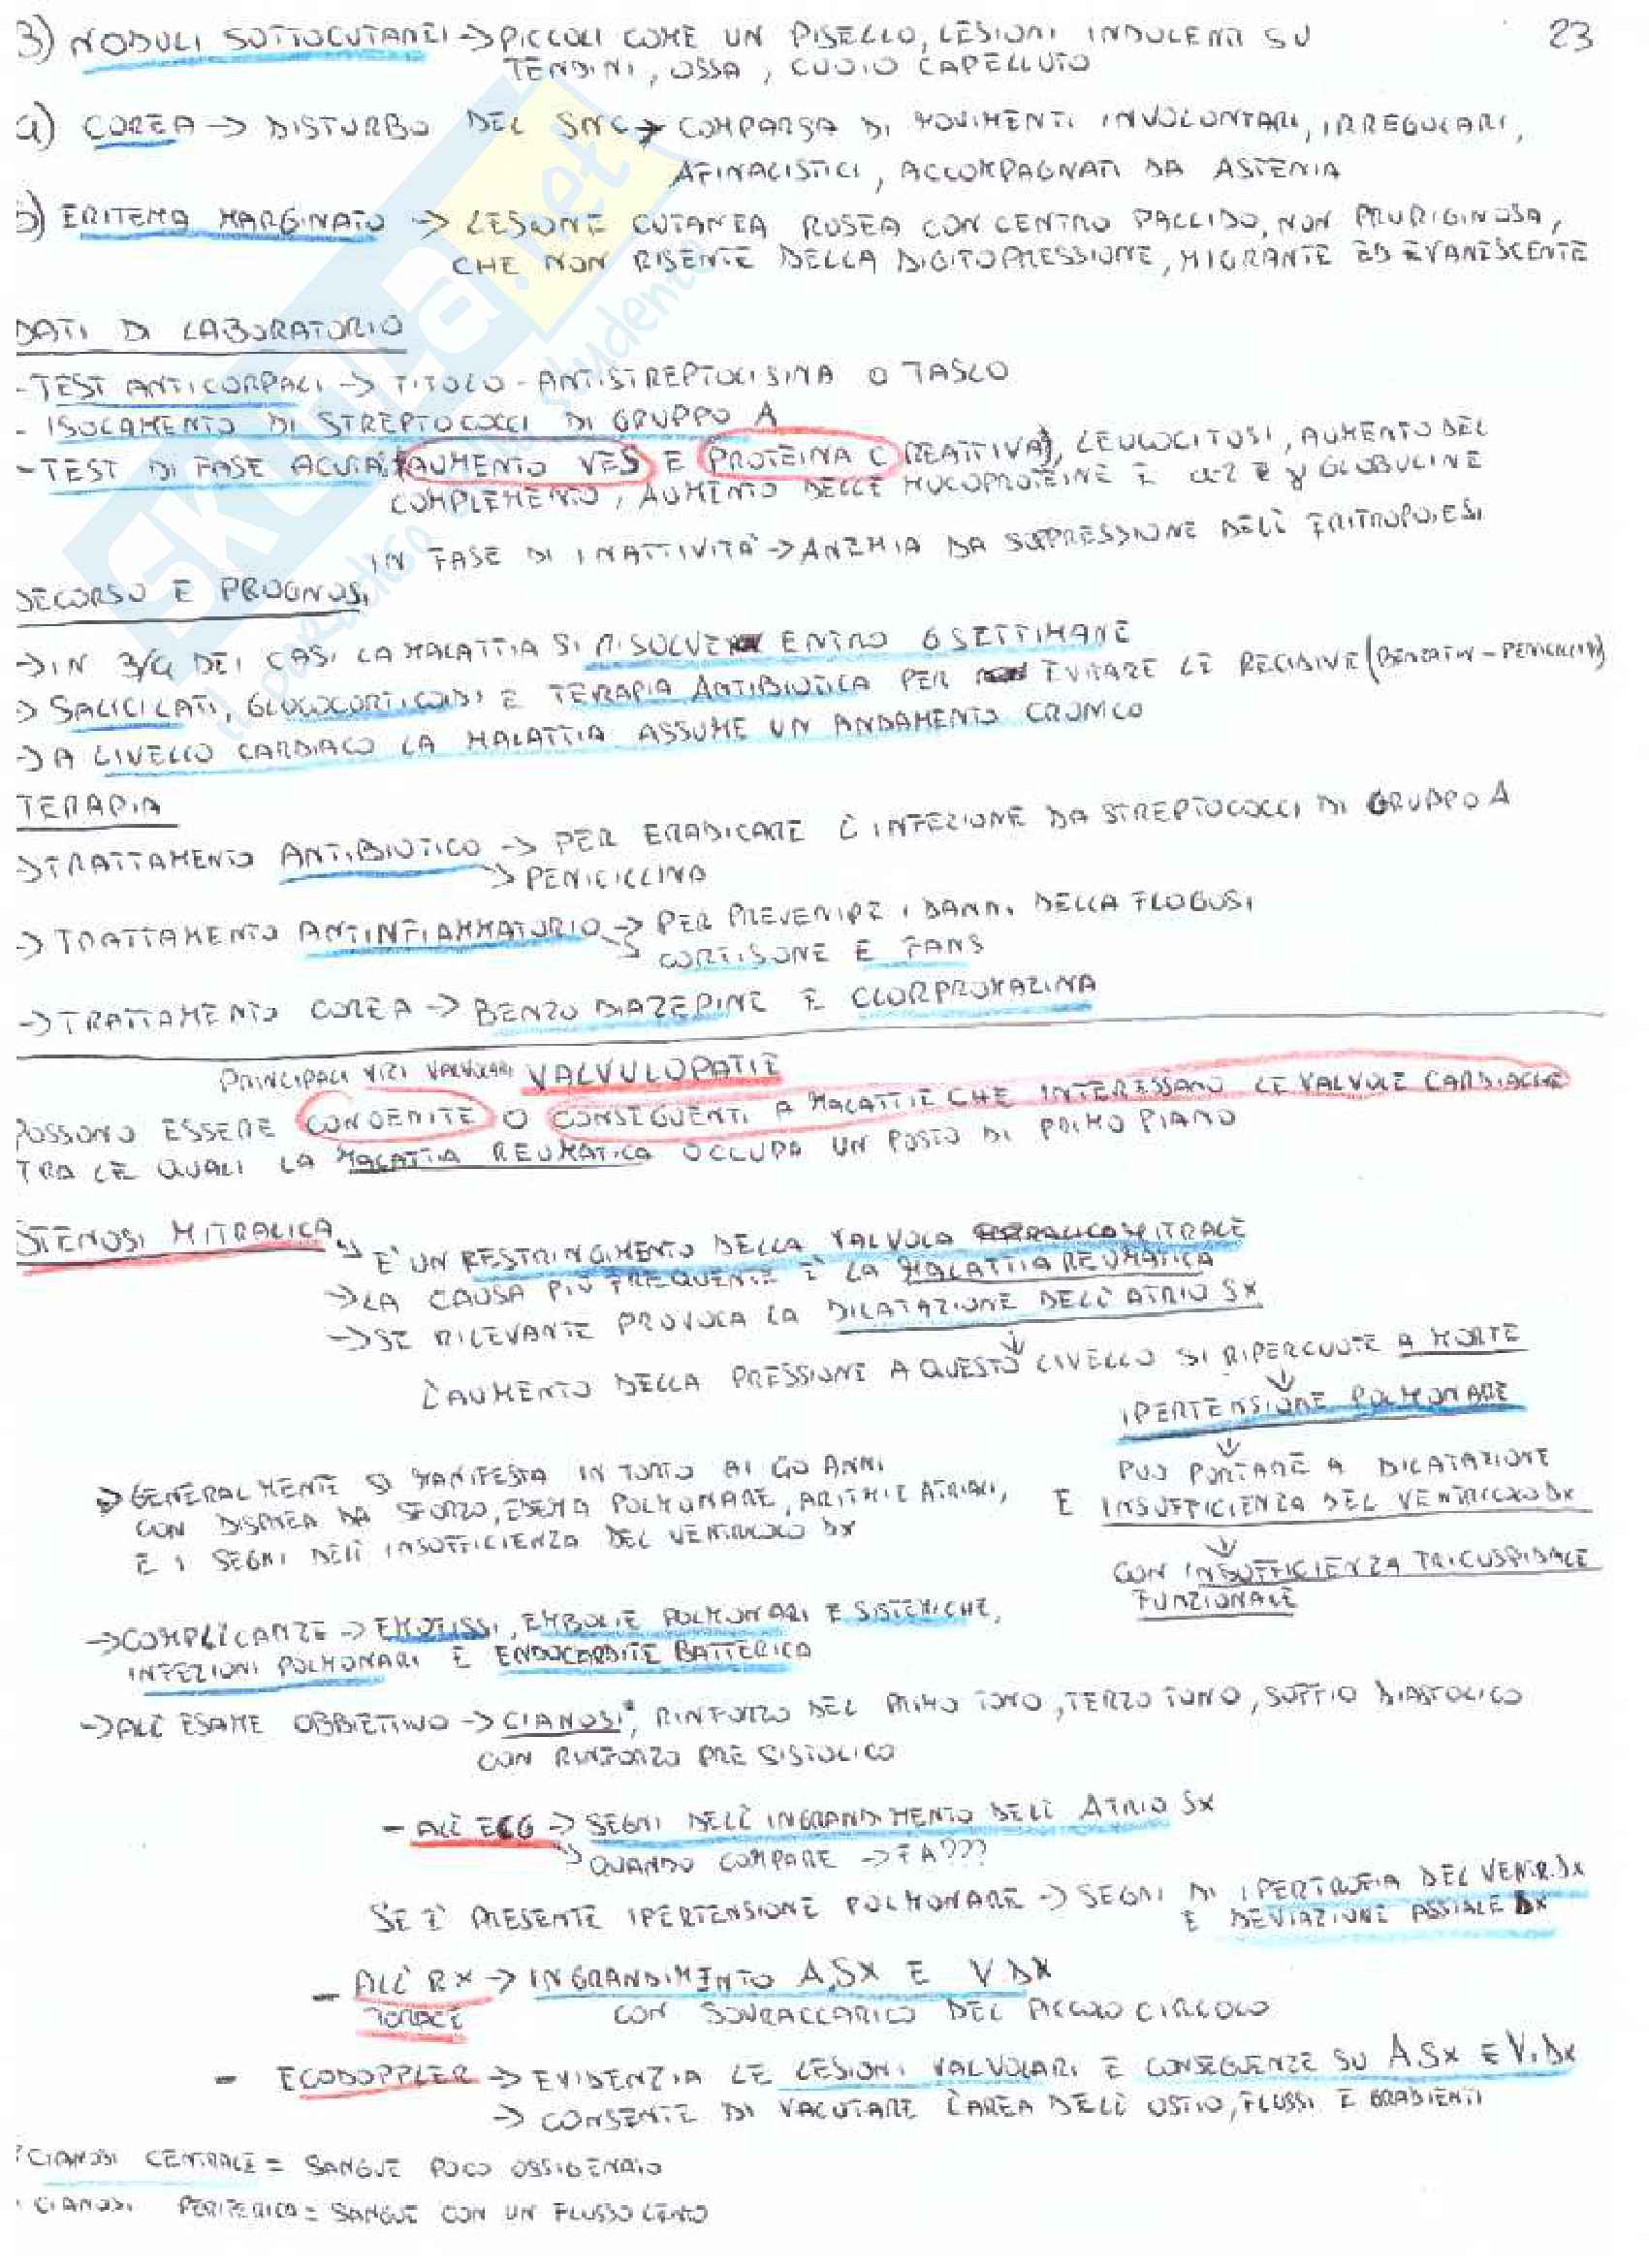 3) NODULI SOTTOCUTANEI → PICCOLI COME UN PISELLO, LESIONI INDOLENTI SU 23
TENDINI, OSSA, CUOIO CAPELLUTO
a) COREA → DISTURBO DEL SNC → COMPARSA DI MOVIMENTI INVOLONTARI, IRREGOLARI,
AFINALISTICI, ACCOMPAGNATI DA ASTENIA
b) ERITEMA MARGINATO → LESIONE CUTANEA ROSEA CON CENTRO PALLIDO, NON PRURIGINOSA,
CHE NON RISENTE DELLA DIGITOPRESSIONE, MIGRANTE ED EVANESCENTE
DATI DI LABORATORIO
- TEST ANTICORPALI → TITOLO - ANTISTREPTOLISINA O TASLO
- ISOLAMENTO DI STREPTOCOCCI DI GRUPPO A
- TEST DI FASE ACUTA (AUMENTO VES E PROTEINA C REATTIVA), LEUCOCITOSI, AUMENTO DEL
COMPLEMENTO, AUMENTO DELLE MUCOPROTEINE E α-2 E γ GLOBULINE
IN FASE DI INATTIVITÀ → ANEMIA DA SOPPRESSIONE DELL'ERITROPOIESI
DECORSO E PROGNOSI
→ IN 3/4 DEI CASI LA MALATTIA SI RISOLVE ENTRO 6 SETTIMANE
→ SALICILATI, GLUCOCORTICOIDI E TERAPIA ANTIBIOTICA PER EVITARE LE RECIDIVE (BENZATIN-PENICILLINA)
→ A LIVELLO CARDIACO LA MALATTIA ASSUME UN ANDAMENTO CRONICO
TERAPIA
→ TRATTAMENTO ANTIBIOTICO → PER ERADICARE L'INFEZIONE DA STREPTOCOCCI DI GRUPPO A
→ PENICILLINA
→ TRATTAMENTO ANTINFIAMMATORIO → PER PREVENIRE I DANNI DELLA FLOGOSI
→ CORTISONE E FANS
→ TRATTAMENTO COREA → BENZODIAZEPINE E CLORPROMAZINA
PRINCIPALI VIZI VALVOLARI VALVULOPATIE
POSSONO ESSERE CONGENITE O CONSEGUENTI A MALATTIE CHE INTERESSANO LE VALVOLE CARDIACHE
TRA LE QUALI LA MALATTIA REUMATICA OCCUPA UN POSTO DI PRIMO PIANO
STENOSI MITRALICA → E' UN RESTRINGIMENTO DELLA VALVOLA MITRALE
→ LA CAUSA PIÙ FREQUENTE È LA MALATTIA REUMATICA
→ SE RILEVANTE PROVOCA LA DILATAZIONE DELL'ATRIO SX
↓
L'AUMENTO DELLA PRESSIONE A QUESTO LIVELLO SI RIPERCUOTE A MONTE
↓
IPERTENSIONE POLMONARE
↓
PUÒ PORTARE A DILATAZIONE
E INSUFFICIENZA DEL VENTRICOLO DX
↓
CON INSUFFICIENZA TRICUSPIDALE
FUNZIONALE
→ GENERALMENTE SI MANIFESTA INTORNO AI 40 ANNI
CON DISPNEA DA SFORZO, EDEMA POLMONARE, ARITMIE ATRIALI,
E I SEGNI DELL'INSUFFICIENZA DEL VENTRICOLO DX
→ COMPLICANZE → EMOTISSI, EMBOLIE POLMONARI E SISTEMICHE,
INFEZIONI POLMONARI E ENDOCARDITE BATTERICA
→ ALL'ESAME OBBIETTIVO → CIANOSI*, RINFORZO DEL PRIMO TONO, TERZO TONO, SOFFIO DIASTOLICO
CON RINFORZO PRE SISTOLICO
- ALL'ECG → SEGNI DELL'INGRANDIMENTO DELL'ATRIO SX
→ QUANDO COMPARE → FA???
SE È PRESENTE IPERTENSIONE POLMONARE → SEGNI DI IPERTROFIA DEL VENTR. DX
E DEVIAZIONE ASSIALE DX
- ALL'RX → INGRANDIMENTO A.SX E V DX
TORACE CON SOVRACCARICO DEL PICCOLO CIRCOLO
- ECODOPPLER → EVIDENZIA LE LESIONI VALVOLARI E CONSEGUENZE SU A SX E V. DX
→ CONSENTE DI VALUTARE L'AREA DELL'OSTIO, FLUSSI E GRADIENTI
* CIANOSI CENTRALE = SANGUE POCO OSSIGENATO
CIANOSI PERIFERICA = SANGUE CON UN FLUSSO LENTO
skuola.net